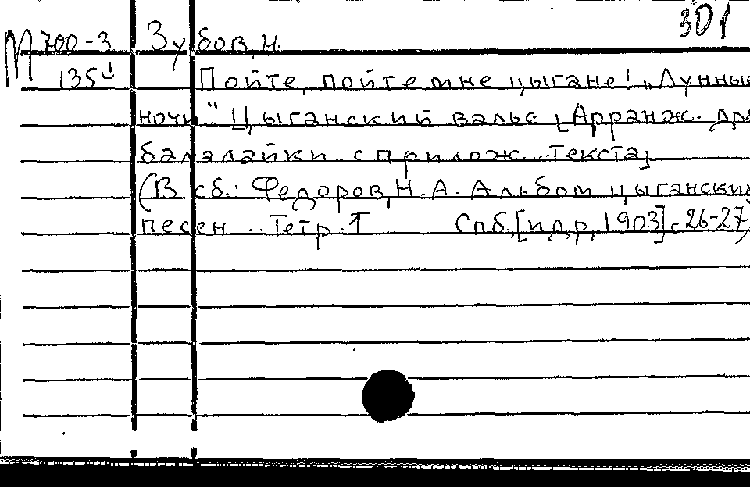 301
М 700-3 Зубов, Н.
135
Пойте, пойте мне цыгане! "Лунные
ночи" Цыганский вальс [Арранж. для
балалайки с прилож. текста]
(В сб.: Федоров, Н. А. Альбом цыганских
песен. Тетр. I Спб, [ц.д.р. 1903] с. 26-27)